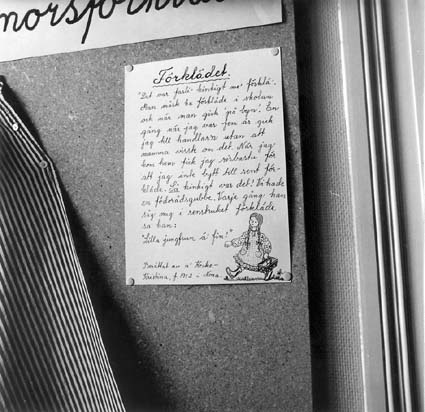 morsförkläde
Förklädet.
"Det var fasli- kinkigt me' förklä-.
Man måste ha förkläde i skolan
och när man gick "på byn". En
gång när jag var fem år gick
jag till handlarn utan att
mamma visste om det. När jag
kom hem fick jag risbasta för
att jag inte bytt till rent för-
kläde. Så kinkigt var det! Vi hade
en födorådsgubbe. Varje gång han
såg mig i renstruket förkläde
sa han:
"Lilla jungfrun ä' fin!"
Berättat av
Kristina, f. 1912 i